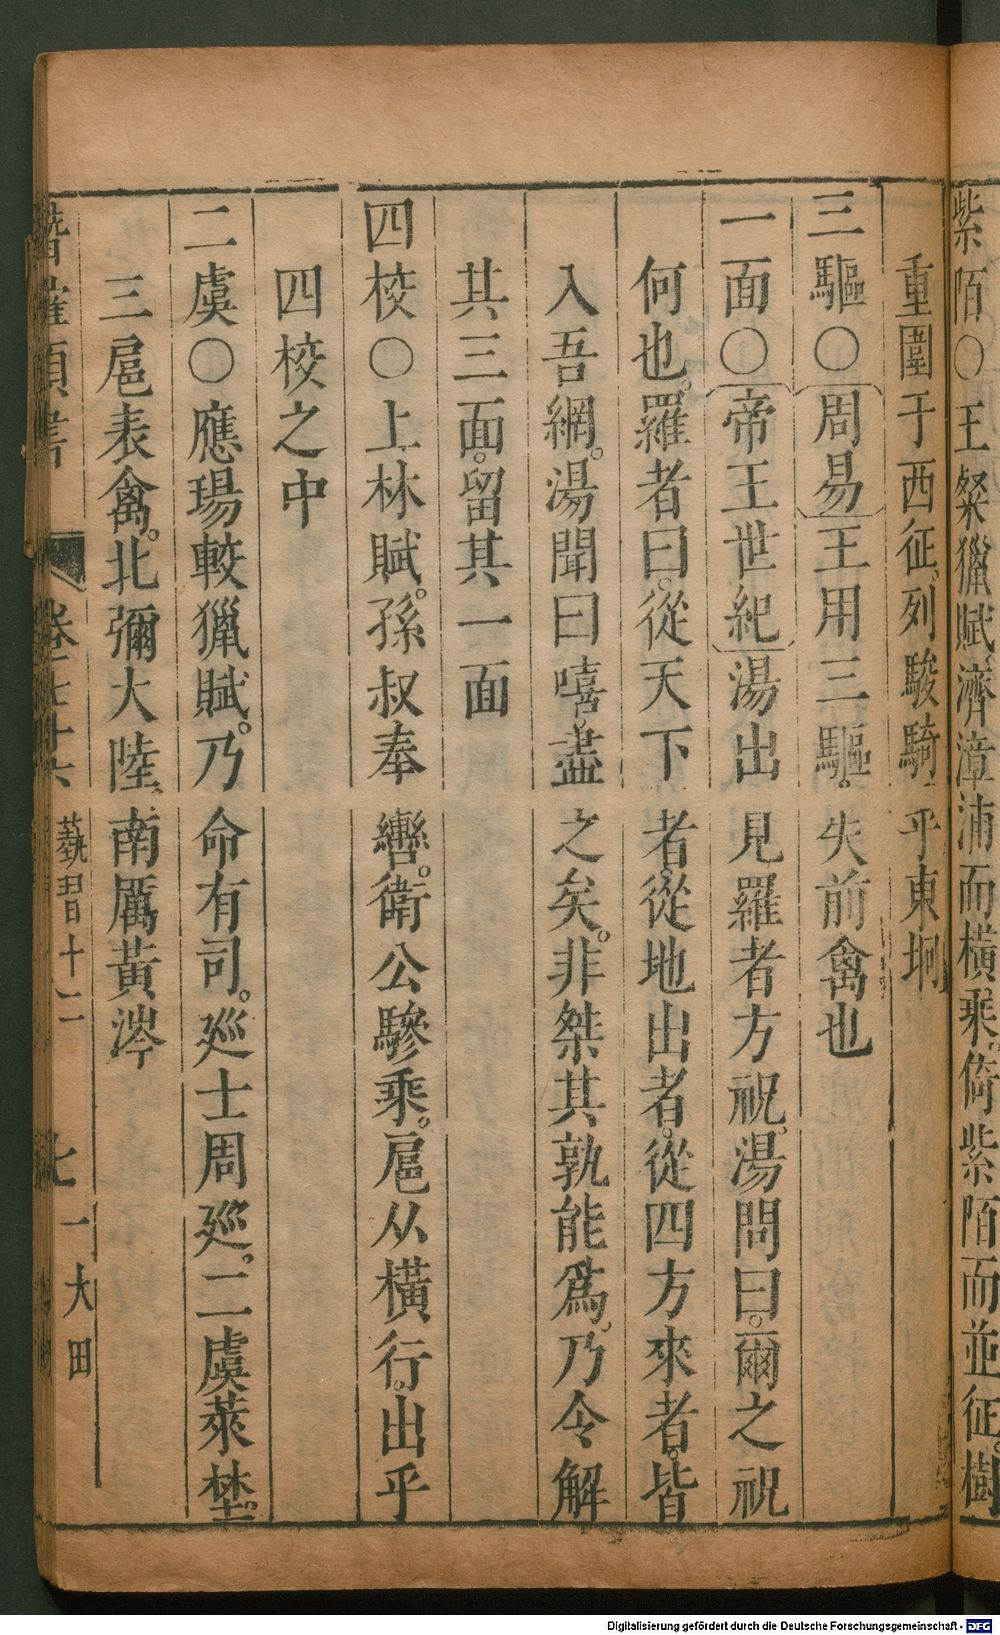 紫陌○王粲獵賦濟漳浦而橫乘。倚紫陌而並征。樹
重圍于西征。列駿騎乎東坰
三驅○周易王用三驅。失前禽也
一面○帝王世紀湯出見羅者方祝。湯問曰。爾之祝
何也。羅者曰。從天下者。從地出者。從四方來者。皆
入吾網。湯聞曰嘻盡之矣。非桀其孰能爲。乃令解
其三面。留其一面
四校○上林賦。孫叔奉轡。衛公驂乘。扈从橫行。出乎
四校之中
二虞○應瑒較獵賦。乃命有司。巡士周巡。二虞萊埜。
三扈表禽。北彌大陸、南厲黃涔
潛確類書 卷七十六 藝習十二 七 一大田
Digitalisierung gefördert durch die Deutsche Forschungsgemeinschaft - DFG